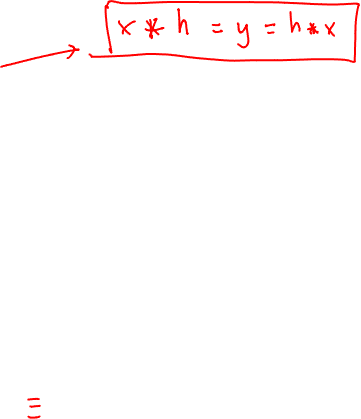 x * h = y = h * x
≡